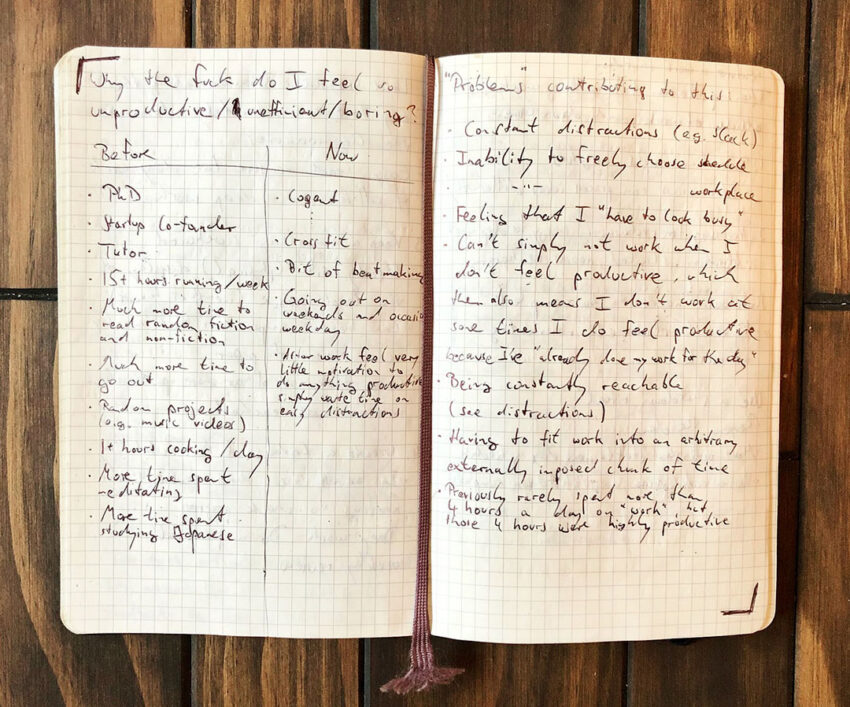 Why the fuck do I feel so
unproductive/inefficient/boring?
Before
· PhD
· Startup Co-founder
· Tutor
· 15+ hours running/week
· Much more time to
read random fiction
and non-fiction
· Much more time to
go out
· Random projects
(e.g. music videos)
· 1+ hours cooking/day
· More time spent
meditating
· More time spent
studying Japanese
Now
· Cogent
⋮
· Crossfit
· Bit of beatmaking
· Going out on
weekends and
weekday
· work feel very
little motivation to
do anything productive
simply waste time on
easy distractions
"Problems" contributing to this:
· Constant distractions (e.g. slack)
· Inability to freely choose schedule
· -"- workplace
· Feeling that I "have to look busy"
· Can't simply not work when I
don't feel productive, which
then also means I don't work at
some times I do feel productive
because I've "already done my work for the day"
· Being constantly reachable
(see distractions)
· Having to fit work into an arbitrary
externally imposed chunk of time
· Previously rarely spent more than
4 hours a day on "work" but
those 4 hours were highly productive